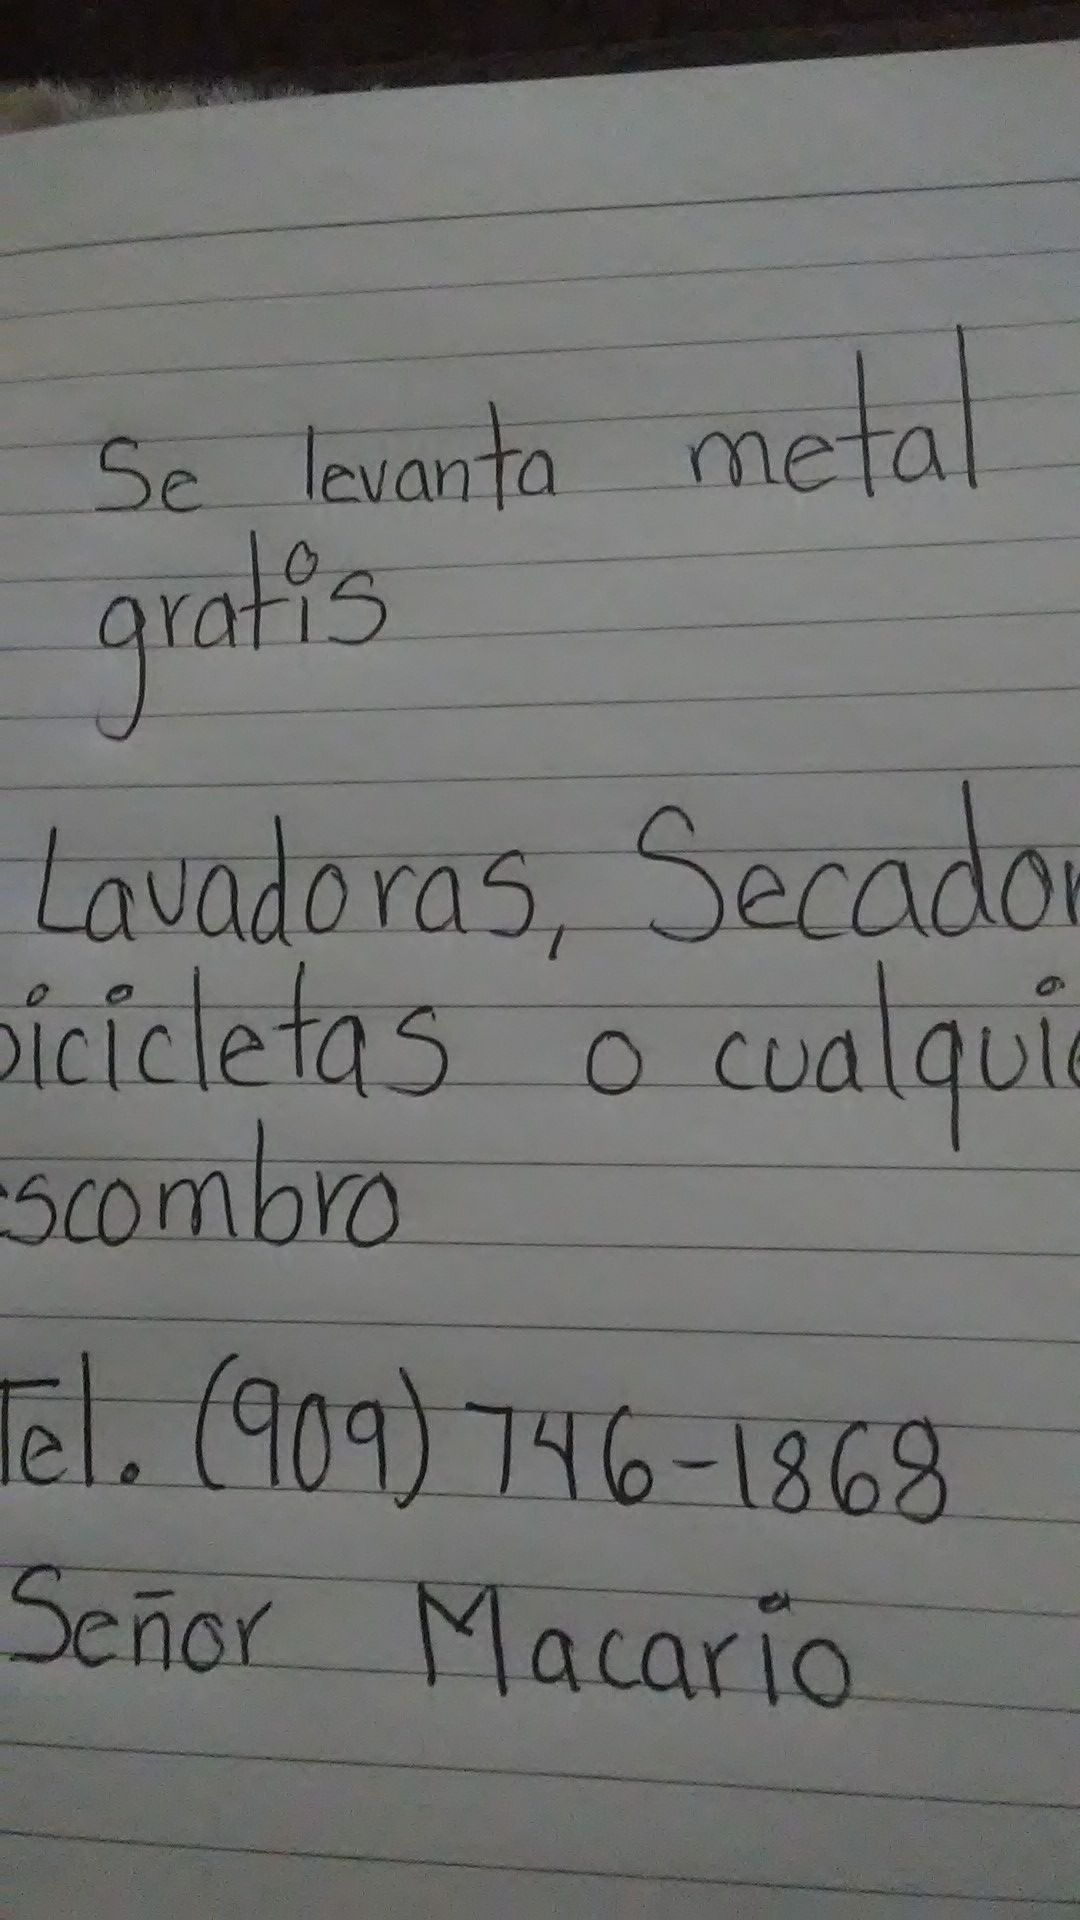 Se levanta metal
gratis
Lavadoras, Secador
bicicletas o cualquie
escombro
Tel. (909) 746-1868
Señor Macario